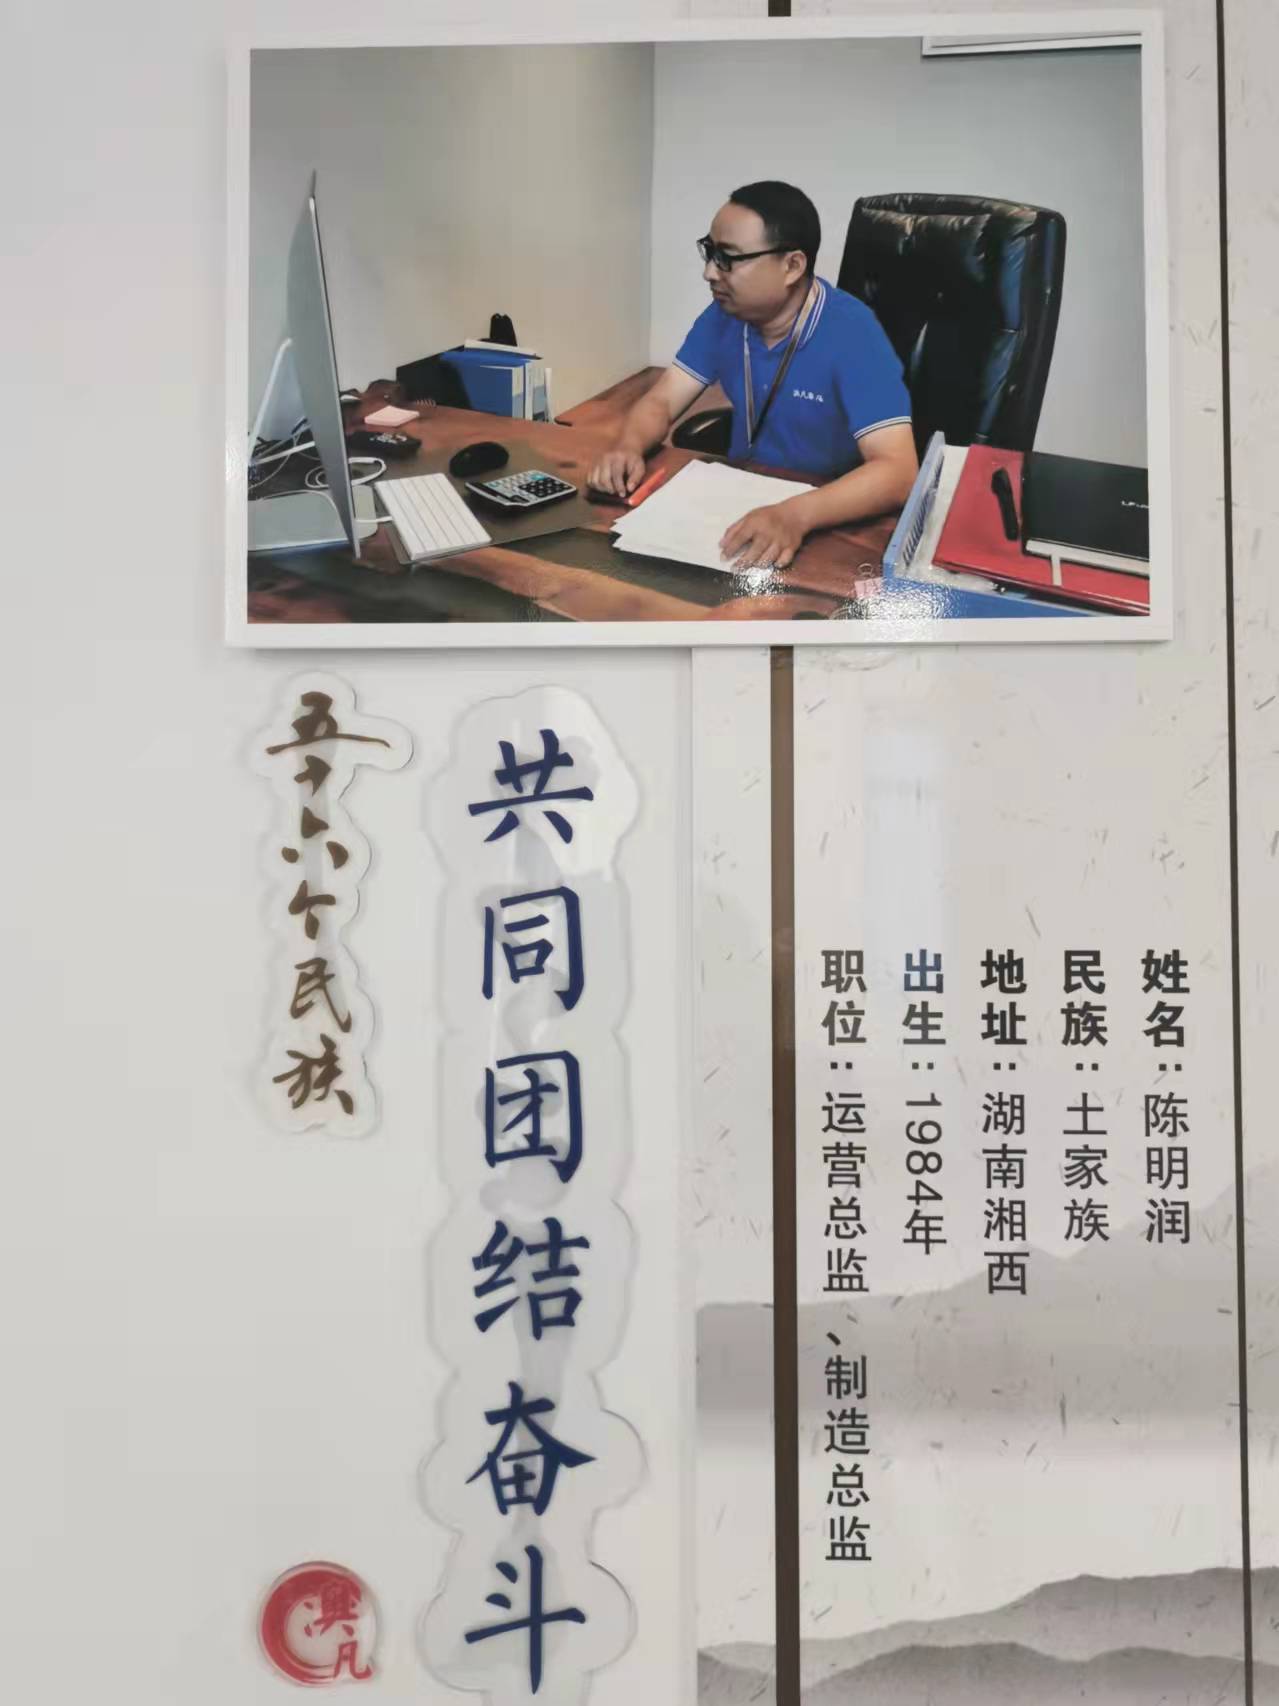 姓名：陈明润
民族：土家族
地址：湖南湘西
出生：1984年
职位：运营总监、制造总监
共同团结奋斗
五十六个民族
澳凡